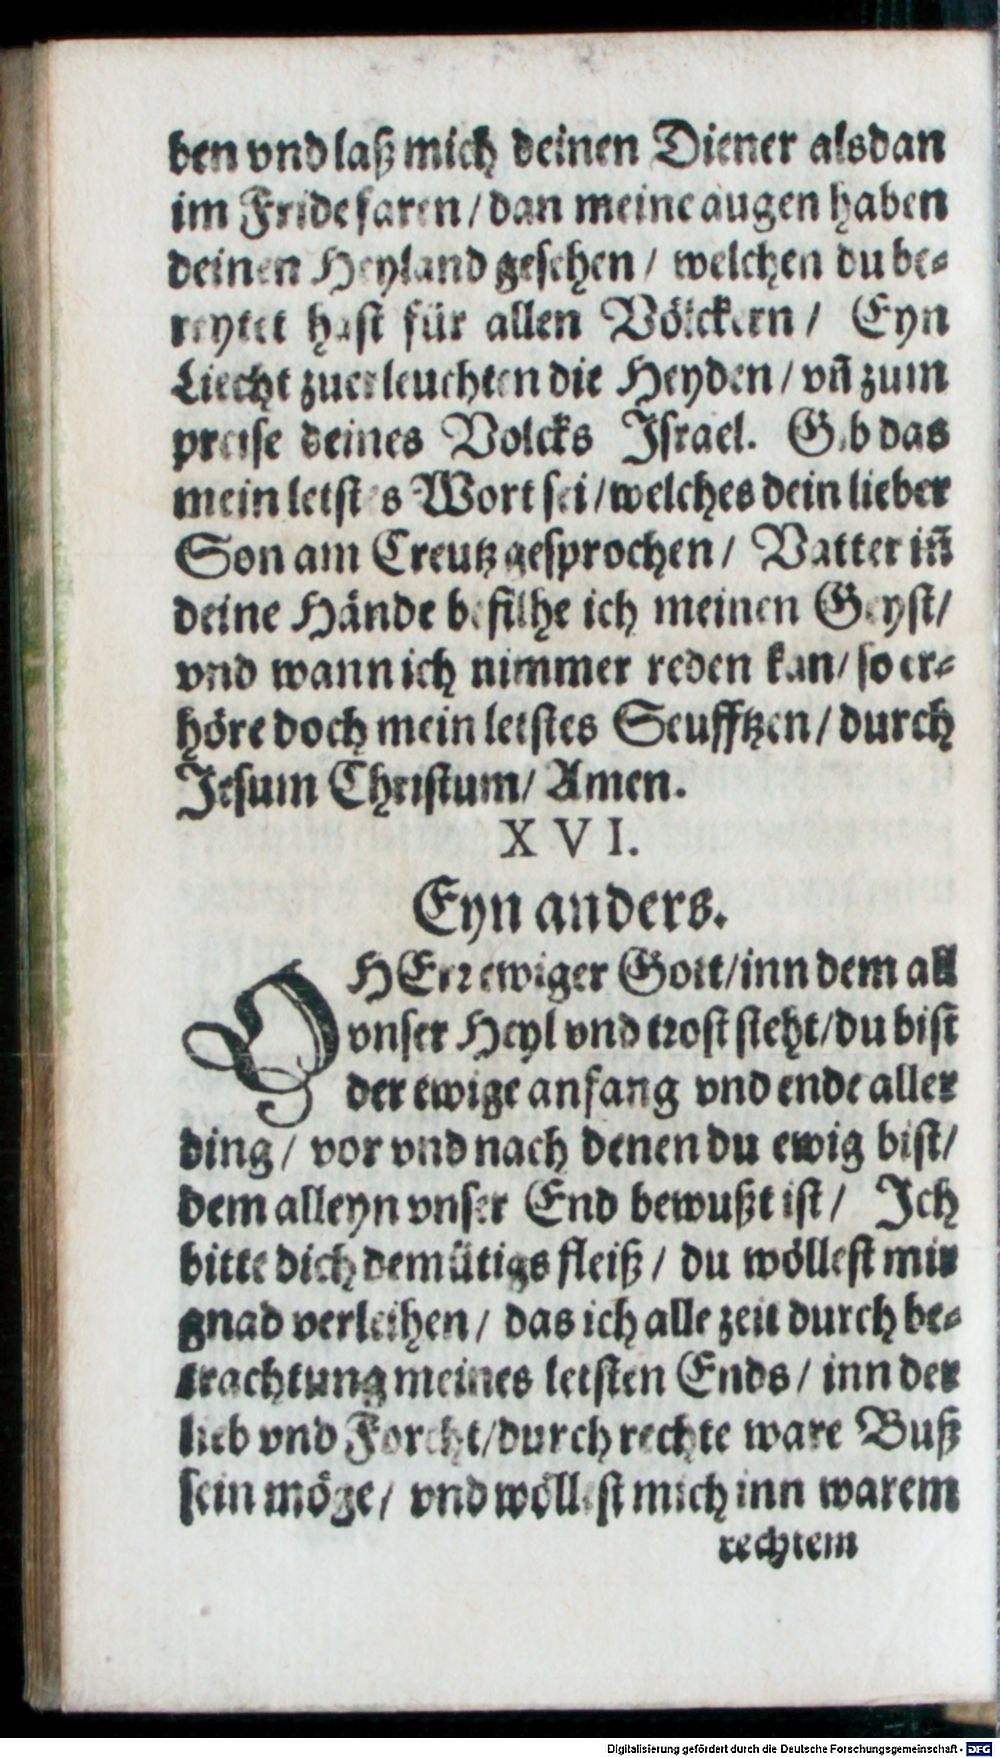 ben vnd laß mich deinen Diener alsdan
im Fride faren / dan meine augen haben
deinen Heyland gesehen / welchen du be⸗
reytet hast für allen Völckern / Eyn
Liecht zuerleuchten die Heyden / vñ zum
preise deines Volcks Israel. Gib das
mein letstes Wort sei / welches dein lieber
Son am Creutz gesprochen / Vatter iñ
deine Hände befilhe ich meinen Geyst /
vnd wann ich nimmer reden kan / so er⸗
höre doch mein letstes Seufftzen / durch
Jesum Christum / Amen.
XVI.
Eyn anders.
O HErr ewiger Gott / inn dem all
vnser Heyl vnd trost steht / du bist
der ewige anfang vnd ende aller
ding / vor vnd nach denen du ewig bist /
dem alleyn vnser End bewußt ist / Ich
bitte dich demütigs fleiß / du wöllest mir
gnad verleihen / das ich alle zeit durch be⸗
trachtung meines letsten Ends / inn der
lieb vnd Forcht / durch rechte ware Buß
sein möge / vnd wöllest mich inn warem
rechtem
Digitalisierung gefördert durch die Deutsche Forschungsgemeinschaft - DFG